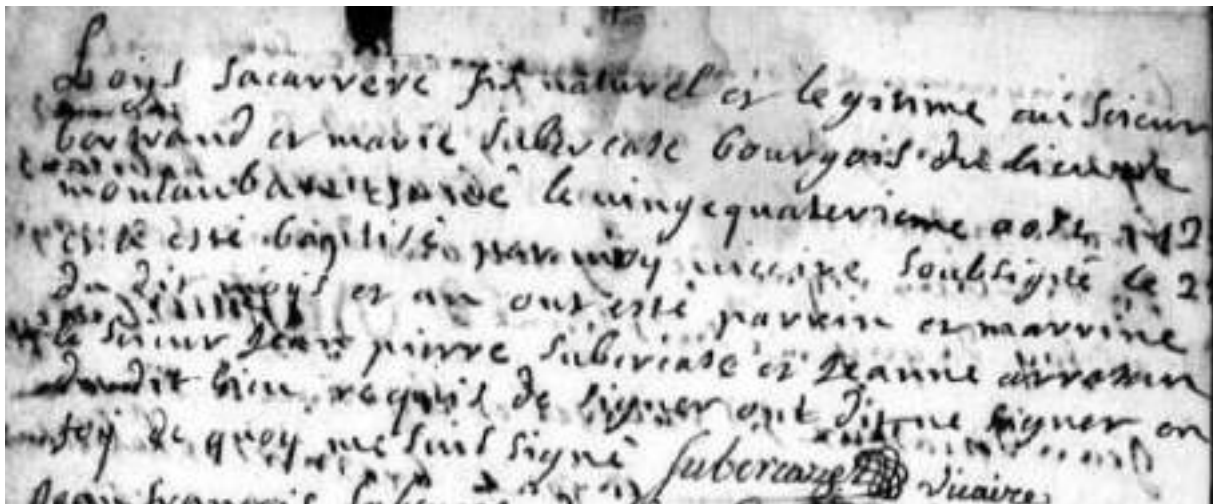 Loÿs sacarrere fis naturel et legitime au sieur
bertrand et marie subercase bourgois du lieu de
montauban le vingt quatrieme aost
et a esté baptisé par moy viccaire soubsigné le 2
du dit moys et an ont esté parrin et marrine
le sieur Jean pierre Subercase et Jeanne
dudit lieu requis de signer ont dit ne signer en
foy de quoy me suis signé Subercaze vicaire
Jean françois